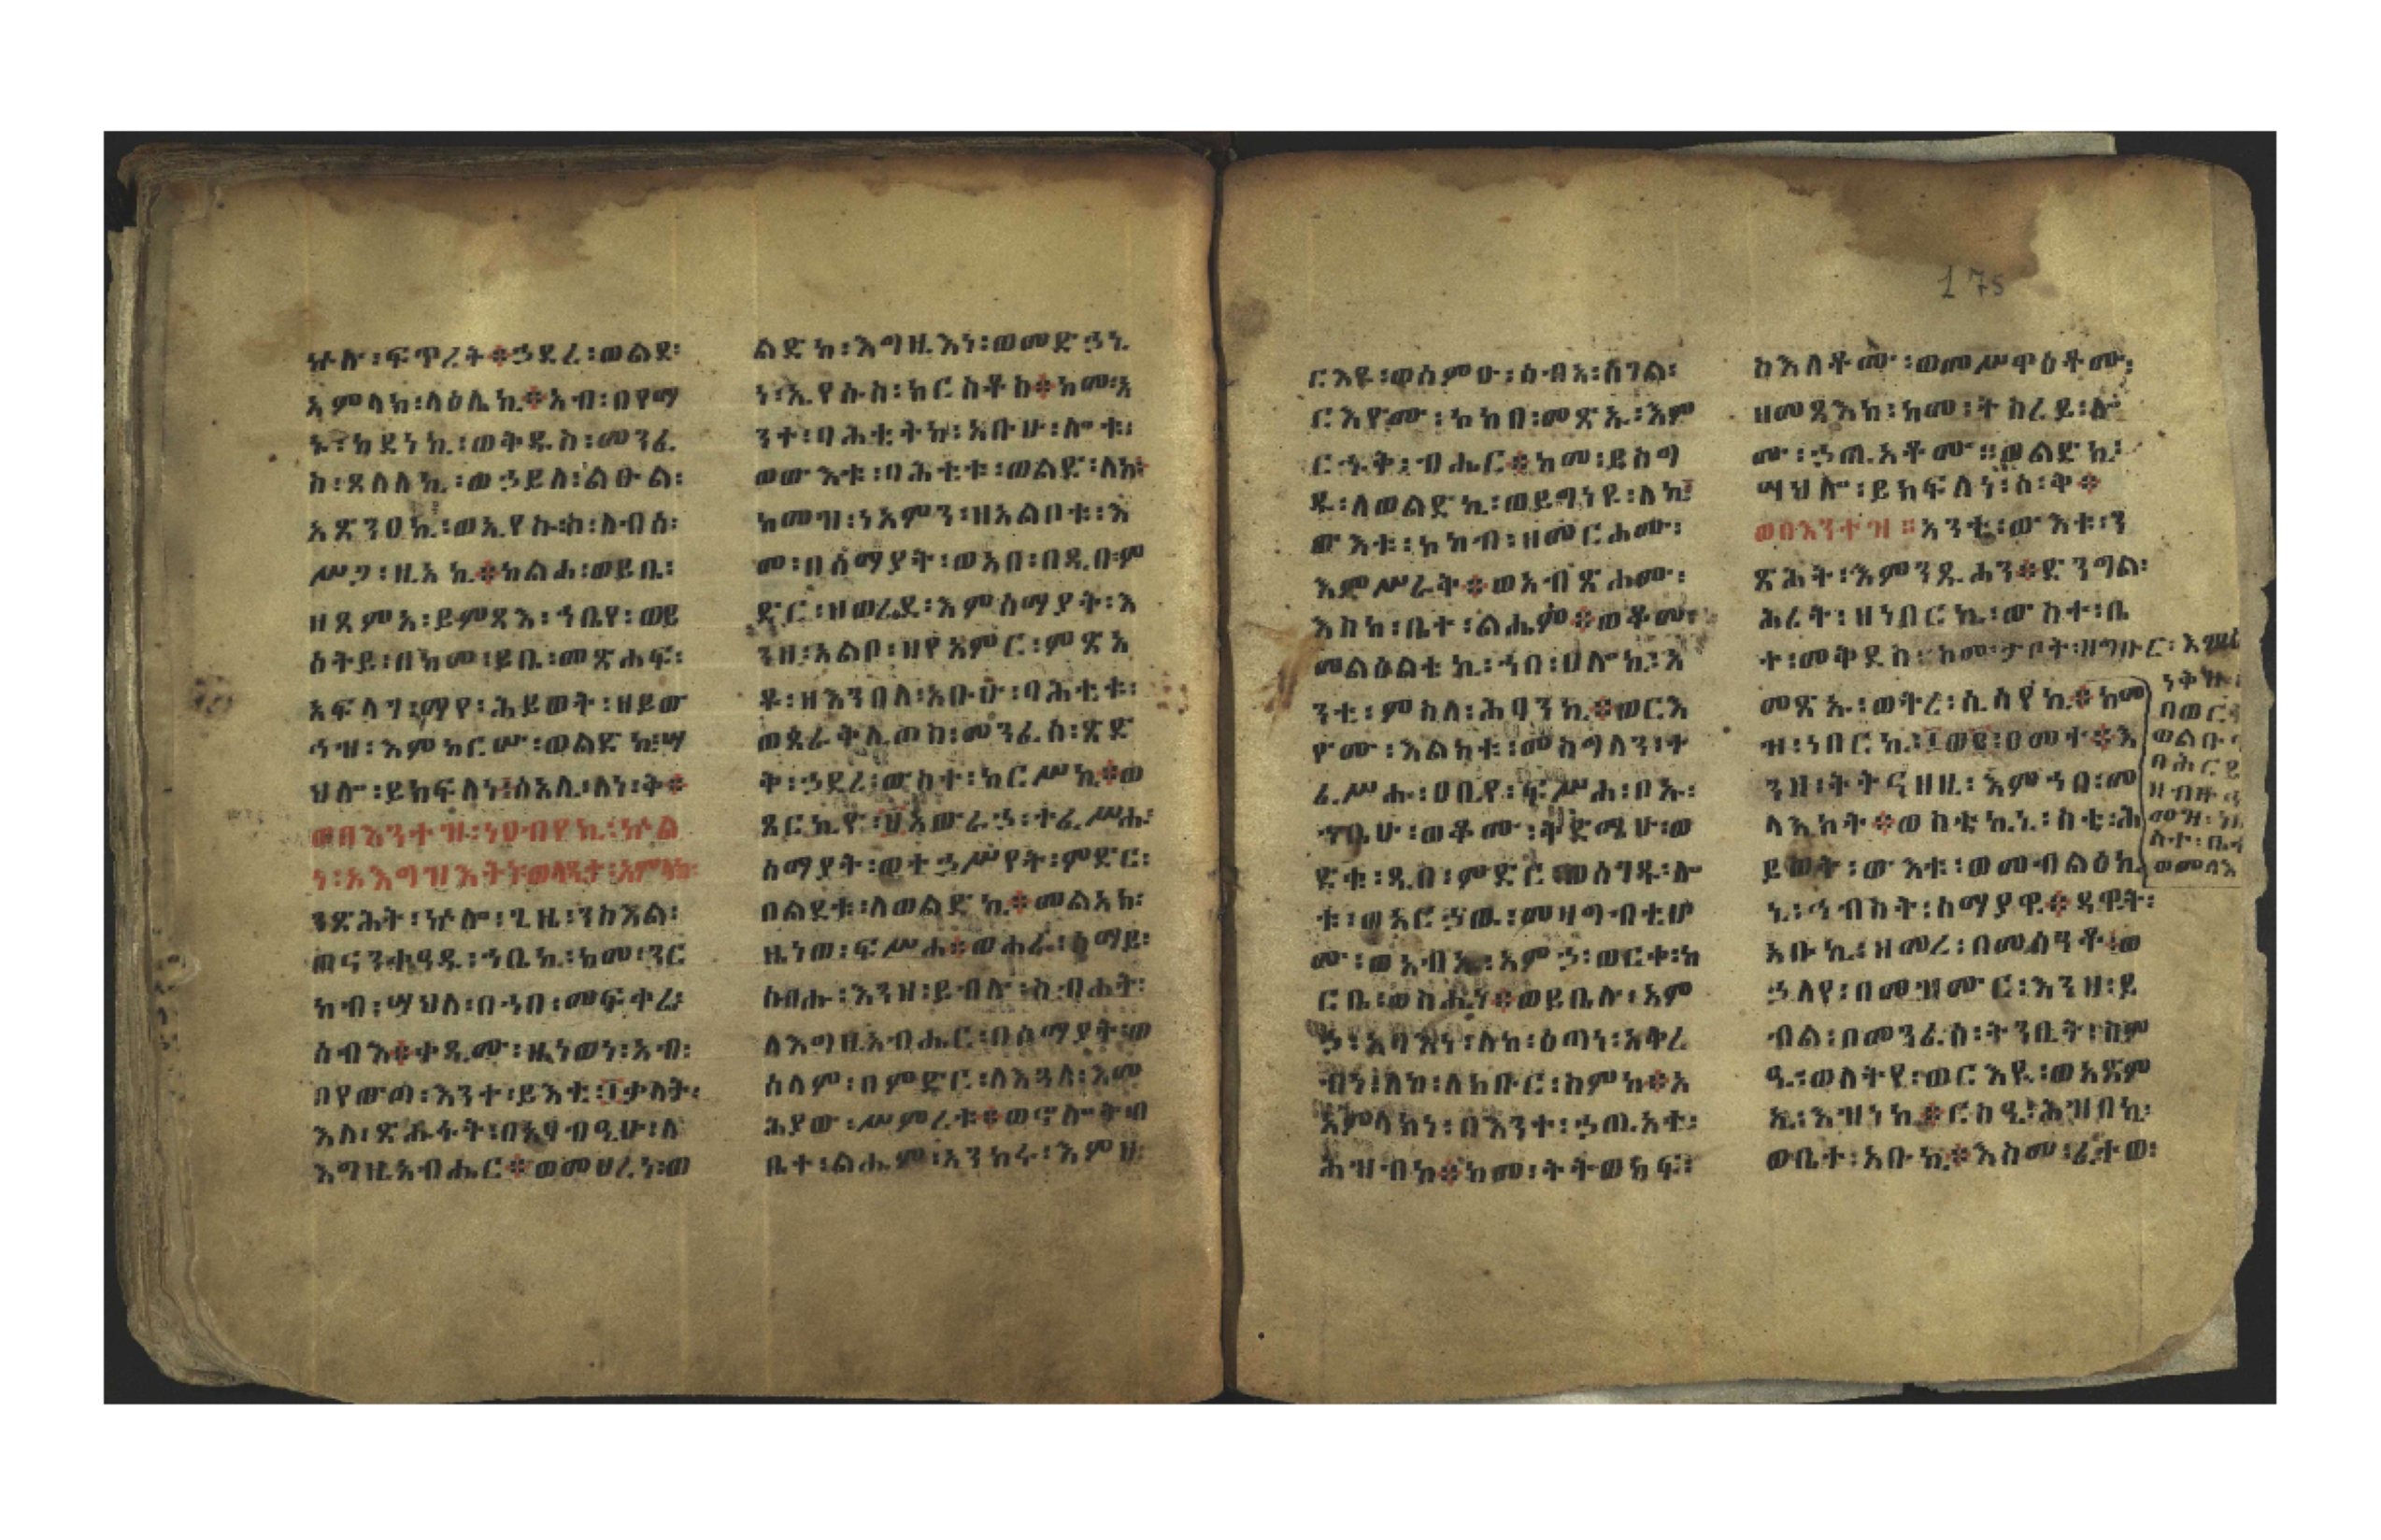 ኵሉ፡ፍጥረት፨ኃደረ፡ወልደ፡
አምላክ፡ላዕሌኪ፨አብ፡በየማ
ኑ፡ከደነኪ፡ወቅዱስ፡መንፈ
ስ፡ጸለለኪ፡ወኃይለ፡ልዑል፡
አጽንዐኪ፡ወኢየሱስ፡ለብሰ፡
ሥጋ፡ዚአኪ፨ከልሐ፡ወይቤ፡
ዘጸምአ፡ይምጻእ፡ኀቤየ፡ወይ
ስትይ፡በከመ፡ይቤ፡መጽሐፍ፡
አፍላገ፡ማየ፡ሕይወት፡ዘይው
ኅዝ፡እምከርሡ፡ወልድኪ፡ሣ
ህሎ፡ይክፍለነ፡ሰአሊ፡ለነ፡ቅ፨
ወበእንተዝ፡ነዐብየኪ፡ኵል
ነ፡ኦእግዝእትነ፡ወላዲተ፡አምላክ፡
ንጽሕት፡ኵሎ፡ጊዜ፡ንስእል፡
ወናንቀዓዱ፡ኀቤኪ፡ከመ፡ንር
ከብ፡ሣህለ፡በኀበ፡መፍቀሬ፡
ሰብእ፨ቀዲሙ፡ዜነወነ፡አብ፡
በየውጣ፡እንተ፡ይእቲ፡፲ቃላት፡
እለ፡ጽሑፋት፡በአፃብዒሁ፡ለ
እግዚአብሔር፨ወመሀረነ፡ወ
ልድከ፡እግዚእነ፡ወመድኃኒ
ነ፡ኢየሱስ፡ክርስቶስ፨ከመ፡አ
ንተ፡ባሕቲትከ፡አቡሁ፡ሎቱ፡
ወውእቱ፡ባሕቲቱ፡ወልድ፡ለከ፡
ከመዝ፡ነአምን፡ዘአልቦቱ፡እ
መ፡በሰማያት፡ወአበ፡በዲበ፡ም
ድር፡ዝወረደ፡እምሰማያት፡እ
ንዘ፡አልቦ፡ዘየአምር፡ምጽአ
ቶ፡ዘእንበለ፡አቡሁ፡ባሕቲቱ፡
ወጰራቅሊጦስ፡መንፈስ፡ጽድ
ቅ፡ኃደረ፡ውስተ፡ከርሥኪ፨ወ
በልደቱ፡ለወልድኪ፨መልአክ፡
ዜነወ፡ፍሥሐ፨ወሐራ፡ሰማይ፡
ሰብሑ፡እንዘ፡ይብሉ፡ስብሐት፡
ለእግዚአብሔር፡በሰማያት፡ወ
ሰላም፡በምድር፡ለእጓለ፡እመ
ሕያው፡ሥምረቱ፨ወኖሎት፡ብ
ቤተ፡ልሔም፡አንከሩ፡እምዘ፡
ርእዩ፡ወሰምዑ፡ሰብአ፡ሰገል፡
ርእዮሙ፡ኮከበ፡መጽኡ፡እም
ርኁቅ፡ብሔር፨ከመ፡ይስግ
ዱ፡ለወልድኪ፡ወይግነዩ፡ለኪ፡
ውእቱ፡ኮከብ፡ዘመርሐሙ፡
እምሥራቅ፨ወአብጽሐሙ፡
እስከ፡ቤተ፡ልሔም፨ወቆመ፡
መልዕልቴኪ፡ኀበ፡ሀሎኪ፡እ
ንቲ፡ምስለ፡ሕፃንኪ፨ወርእ
ዮሙ፡እልክቱ፡መሰግላን፡ተ
ፈሥሑ፡ዐቢየ፡ፍሥሐ፡ቦኡ፡
ኀቤሁ፡ወቆሙ፡ቅድሜሁ፡ወ
ድቁ፡ዲበ፡ምድር፡ወሰገዱ፡ሎ
ቱ፡ወአርኃዉ፡መዛግብቲሆ
ሙ፡ወአብኡ፡አምኃ፡ወርቀ፡ከ
ርቤ፡ወስሒነ፨ወይቤሉ፡አም
ኃ፡አባእነ፡ለከ፡ዕጣነ፡አቅረ
ብነ፡ለከ፡ለክቡር፡ስምከ፨አ
አምላክነ፡በእንተ፡ኃጢአተ፡
ሕዝብከ፨ከመ፡ትትወከፍ፡
ስእለቶሙ፡ወመሥዋዕቶሙ፡
ዘመጻእከ፡ከመ፡ትስረይ፡ሎ
ሙ፡ኃጢአቶሙ።ወልድኪ፡
ሣህሎ፡ይክፍለነ፡ሰ፡ቅ፨
ወበእንተዝ።አንቲ፡ውእቱ፡ን
ጽሕት፡እምንጹሓን፨ድንግል፡
ሕሪት፡ዘነበርኪ፡ውስተ፡ቤ
ተ፡መቅደስ፡ከመ፡ታቦት፡ዘግቡር፡እምዕ
መጽኡ፡ወትረ፡ሲሳየኪ፨ከመ
ዝ፡ነበርኪ፡፲ወ፪፡ዐመተ፨እ
ንዘ፡ትትናዘዚ፡እምኀበ፡መ
ላእክት፨ወስቴኪኒ፡ስቴ፡ሕ
ይወት፡ውእቱ፡ወመብልዕኪ
ኒ፡ኅብስት፡ሰማያዊ፨ዳዊት፡
አቡኪ፡ዘመረ፡በመሰንቆ፡ወ
ኃለየ፡በመዝሙር፡እንዘ፡ይ
ብል፡በመንፈሰ፡ትንቢት፡ስም
ዒ፡ወለትየ፡ወርእዪ፡ወአጽም
ኢ፡እዝነኪ፨ርስዒ፡ሕዝበኪ፡
ወቤተ፡አቡኪ፨እስመ፡ፈተወ፡